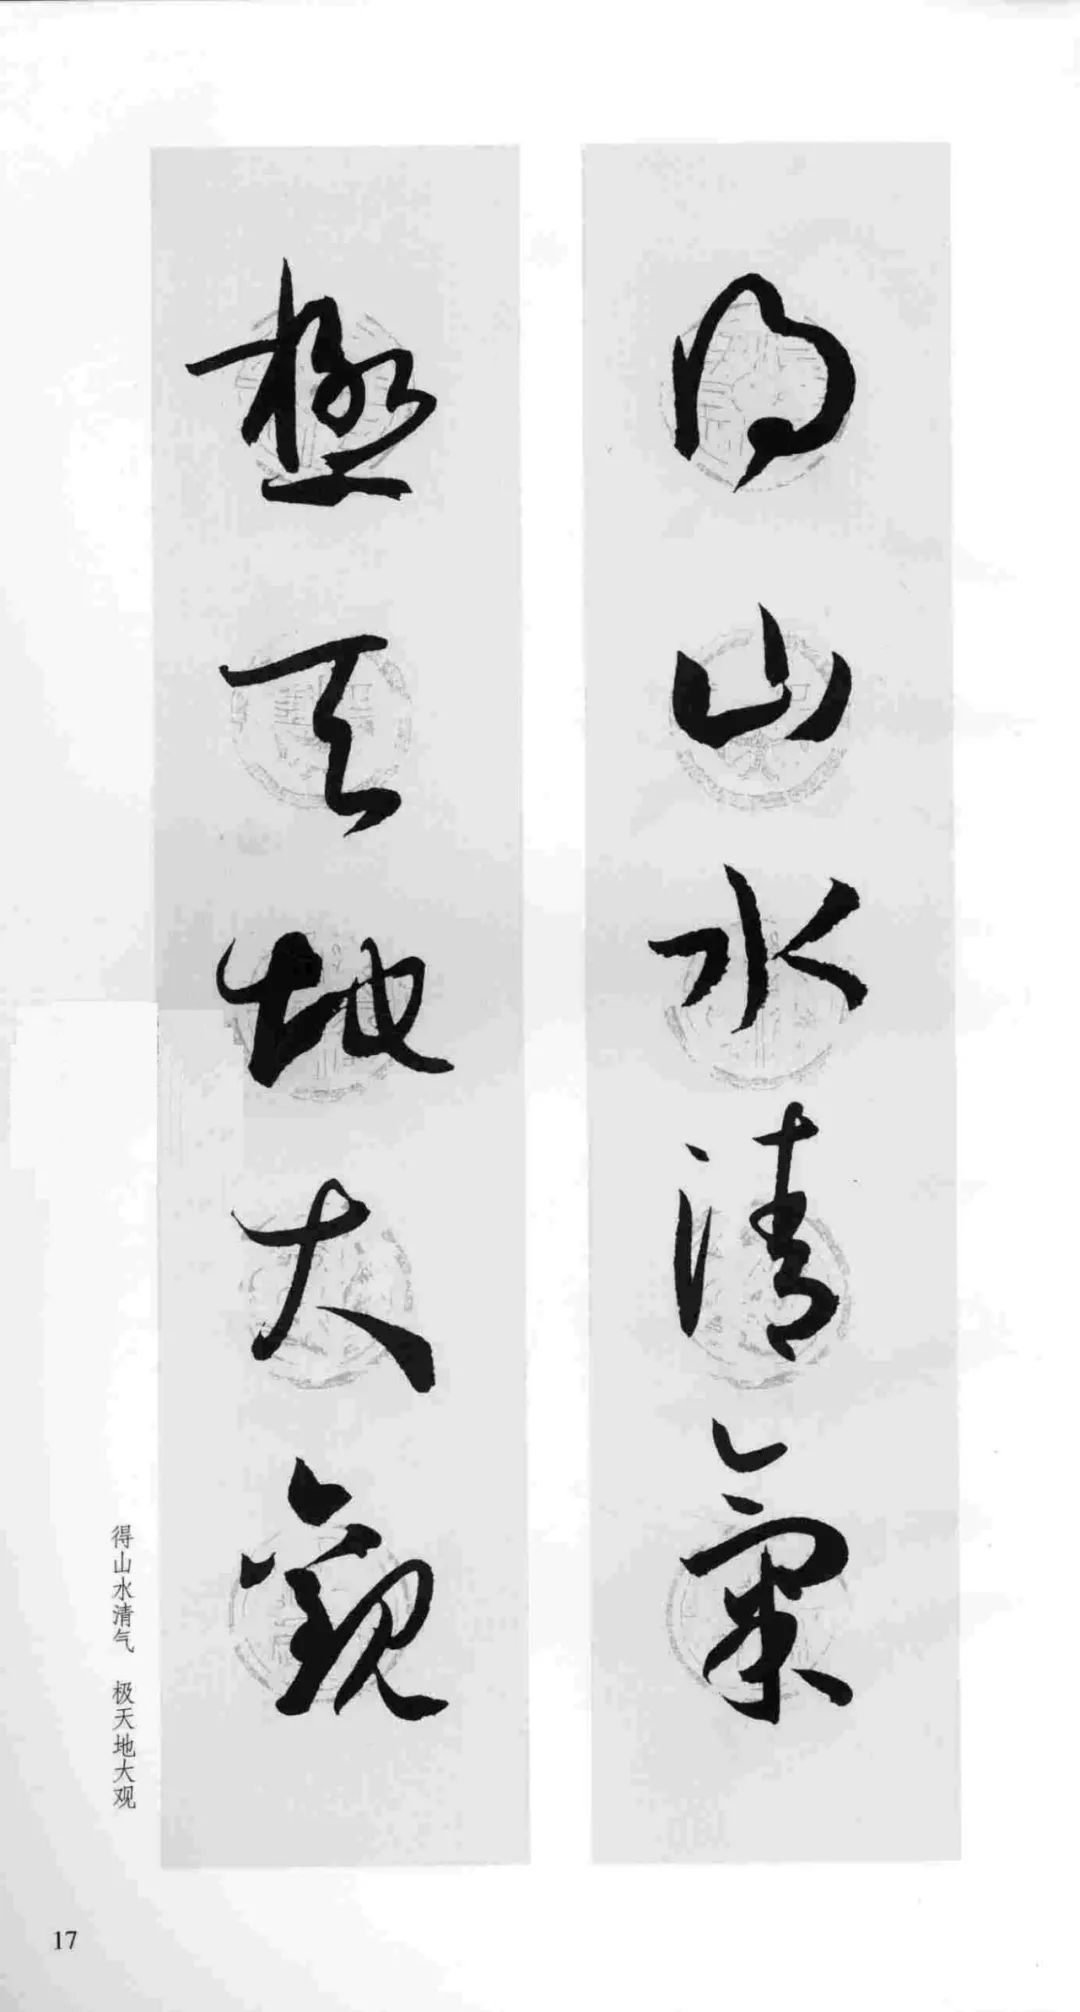 得山水清氣
極天地大觀
得山水清气 极天地大观
17